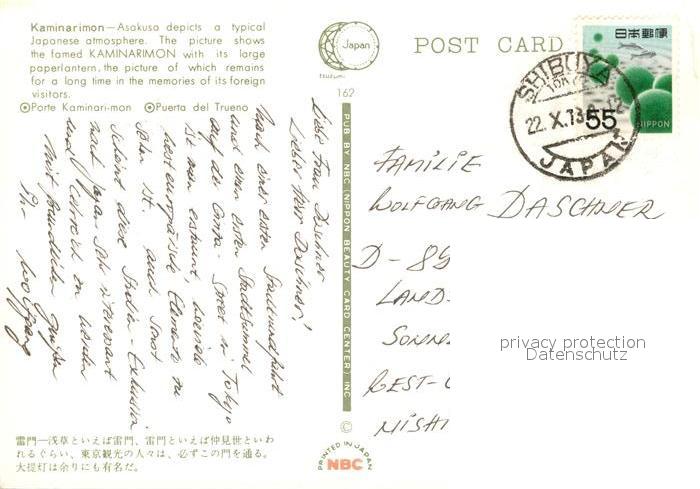 Kaminarimon—Asakusa depicts a typical
Japanese atmosphere. The picture shows
the famed KAMINARIMON with its large
paperlantern, the picture of which remains
for a long time in the memories of its foreign
visitors.
Porte Kaminari-mon Puerta del Trueno
Japan
tsuzumi
162
POST CARD
日本郵便
55
NIPPON
SHIBUYA
22.X.73
JAPAN
PUB BY NBC (NIPPON BEAUTY CARD CENTER) INC
©
PRINTED IN JAPAN
NBC
Liebe Frau Daschner
Lieber Herr Daschner!
Nach einer ersten Stadtrundfahrt
und einem ersten Stadtbummel
auf der Ginza-Street in Tokyo
ist man erstaunt, wieviele
westeuropäische Elemente zu
sehen ist. Auch sonst
scheint diese Studien-Exkursion
nach Japan sehr interessant
und lehrreich zu werden
Mit freundlichen Grüßen
Ihr Wolfgang
FAMILIE
WOLFGANG DASCHNER
D-89
LAND
SONN
BEST-
NISHI
privacy protection
Datenschutz
雷門—浅草といえば雷門、雷門といえば仲見世といわ
れるぐらい、東京観光の人々は、必ずこの門を通る。
大提灯は余りにも有名だ。